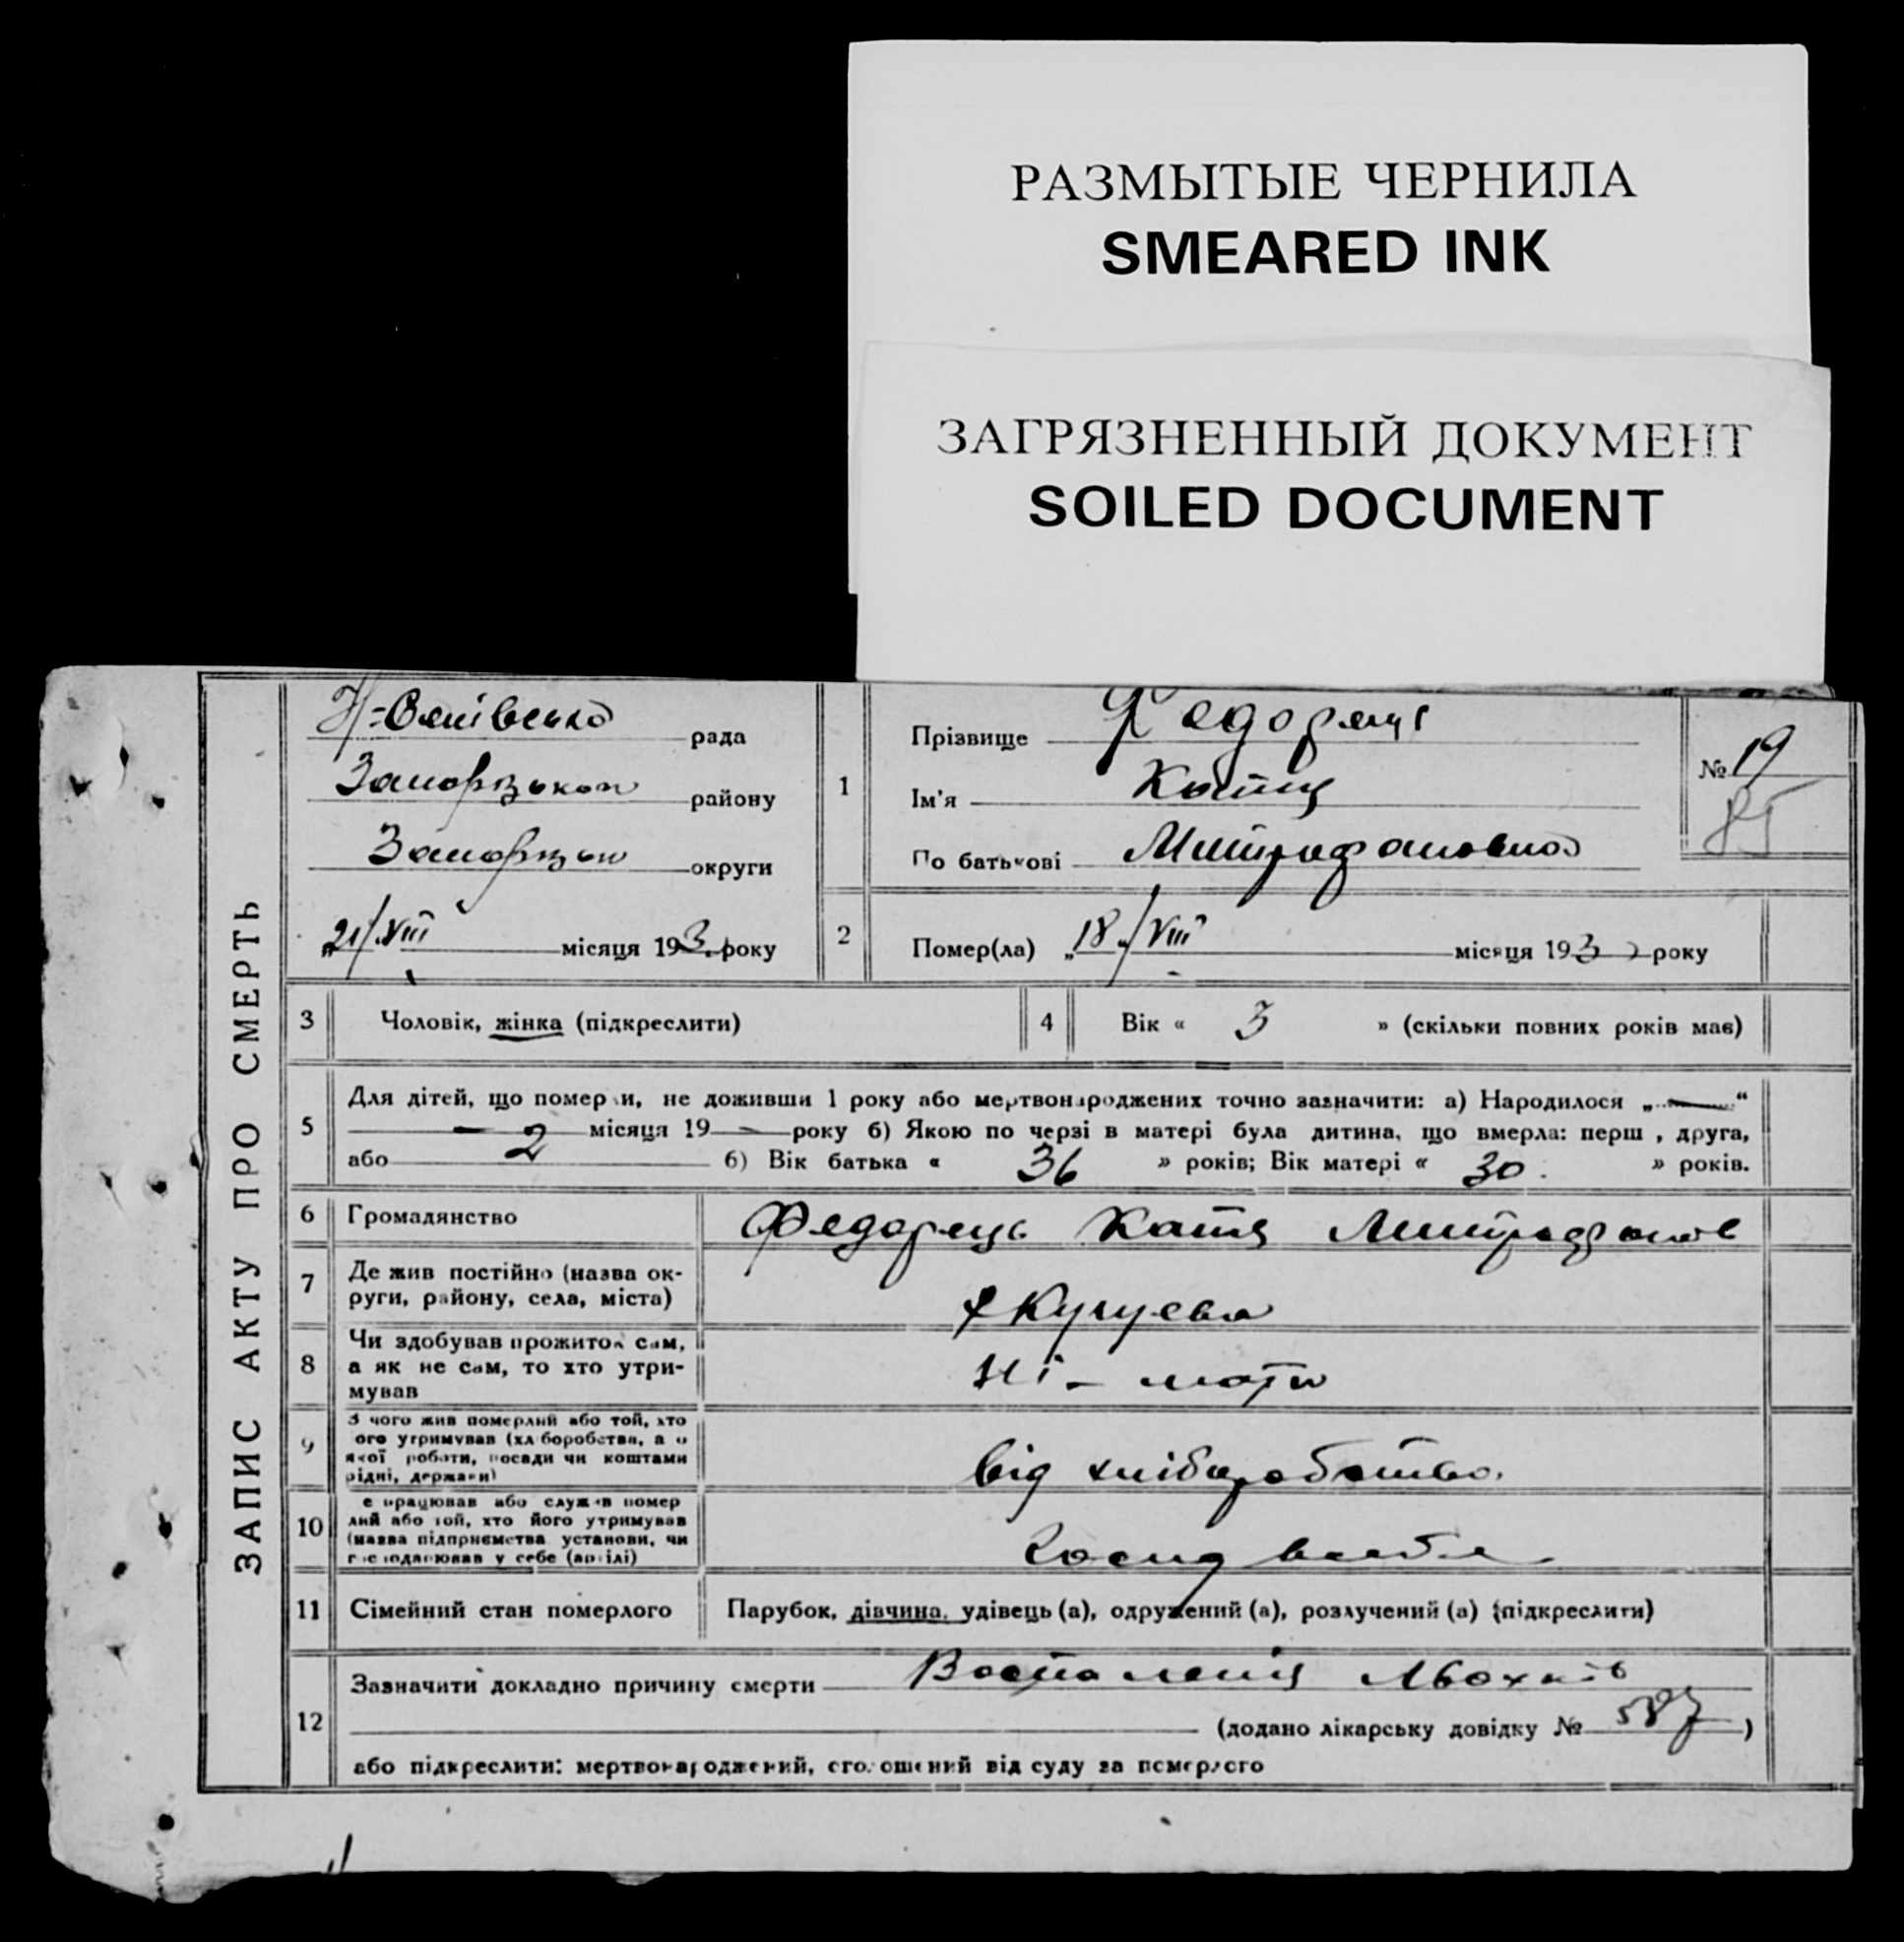 РАЗМЫТЫЕ ЧЕРНИЛА
SMEARED INK
ЗАГРЯЗНЕННЫЙ ДОКУМЕНТ
SOILED DOCUMENT
ЗАПИС АКТУ ПРО СМЕРТЬ
рада
району
округи
21/VIII місяця 193 року
1
Прізвище Федорець
Ім'я Катя
По батькові Митрофановна
№ 19
85
2
Помер(ла) „18„/VIII місяця 193 року
3 Чоловік, жінка (підкреслити)
4 Вік « 3 » (скільки повних років має)
5 Для дітей, що померли, не доживши 1 року або мертвонароджених точно зазначити: а) Народилося „ — “
— місяця 19 — року б) Якою по черзі в матері була дитина, що вмерла: перш , друга,
або 2 б) Вік батька « 36 » років; Вік матері « 30 » років.
6 Громадянство Федорець Катя Митрофанов
7 Де жив постійно (назва ок-
руги, району, села, міста)
8 Чи здобував прожиток сам,
а як не сам, то хто утри-
мував Ні – мати
9 З чого жив померлий або той, хто
ого утримував (хліборобства, а о
якої роботи, посади чи коштами
рідні, держави) від хліборобства.
10 е працював або служив помер
лий або той, хто його утримував
(назва підприємства установи, чи
господарював у себе (артілі)
11 Сімейний стан померлого Парубок, дівчина, удівець (а), одружений (а), розлучений (а) (підкреслити)
12 Зазначити докладно причину смерти Воспаленія
(додано лікарську довідку № 587 )
або підкреслити: мертвонароджений, оголошений від суду за померлого